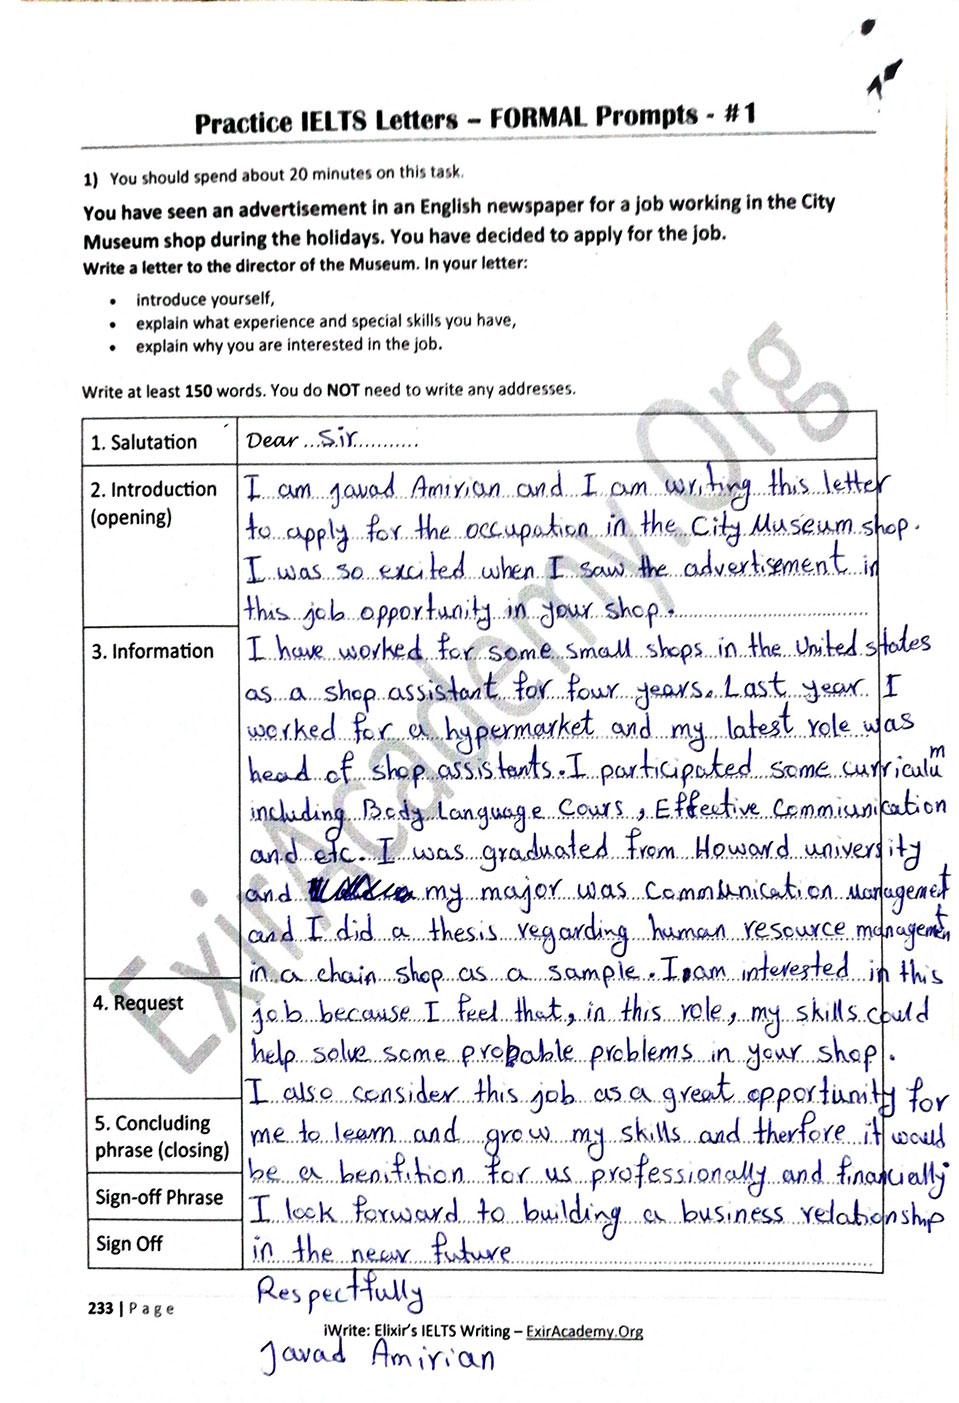 Practice IELTS Letters – FORMAL Prompts - #1
1) You should spend about 20 minutes on this task.
You have seen an advertisement in an English newspaper for a job working in the City
Museum shop during the holidays. You have decided to apply for the job.
Write a letter to the director of the Museum. In your letter:
• introduce yourself,
• explain what experience and special skills you have,
• explain why you are interested in the job.
Write at least 150 words. You do NOT need to write any addresses.
1. Salutation
Dear ...Sir...........
2. Introduction
(opening)
I am Javad Amirian and I am writing this letter
to apply for the occupation in the City Museum shop.
I was so excited when I saw the advertisement in
this job opportunity in your shop.
3. Information
I have worked for some small shops in the United states
as a shop assistant for four years. Last year I
worked for a hypermarket and my latest role was
head of shop assistants. I participated some curriculum
including Body Language Cours, Effective Commiunication
and etc. I was graduated from Howard university
and my major was Commiunication Management
and I did a thesis regarding human resource management
in a chain shop as a sample. I am interested in this
4. Request
job because I feel that, in this role, my skills could
help solve some probable problems in your shop.
I also consider this job as a great opportunity for
5. Concluding
phrase (closing)
me to learn and grow my skills and therfore it would
be a benifition for us professionally and financially
Sign-off Phrase
I look forward to building a business relationship
Sign Off
in the near future
Respectfully
233 | Page
iWrite: Elixir's IELTS Writing – ExirAcademy.Org
Javad Amirian
ExirAcademy.Org